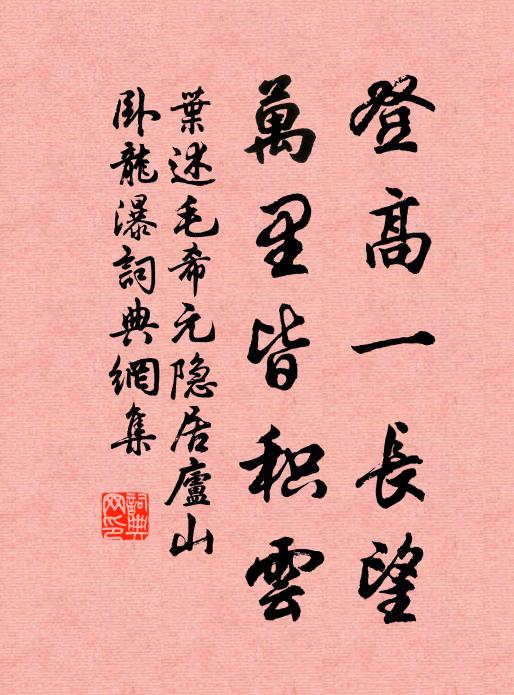 登高一長望
萬里皆积雲
葉述毛希元隐居廬山
卧龍瀑詞典網集
詞典网印